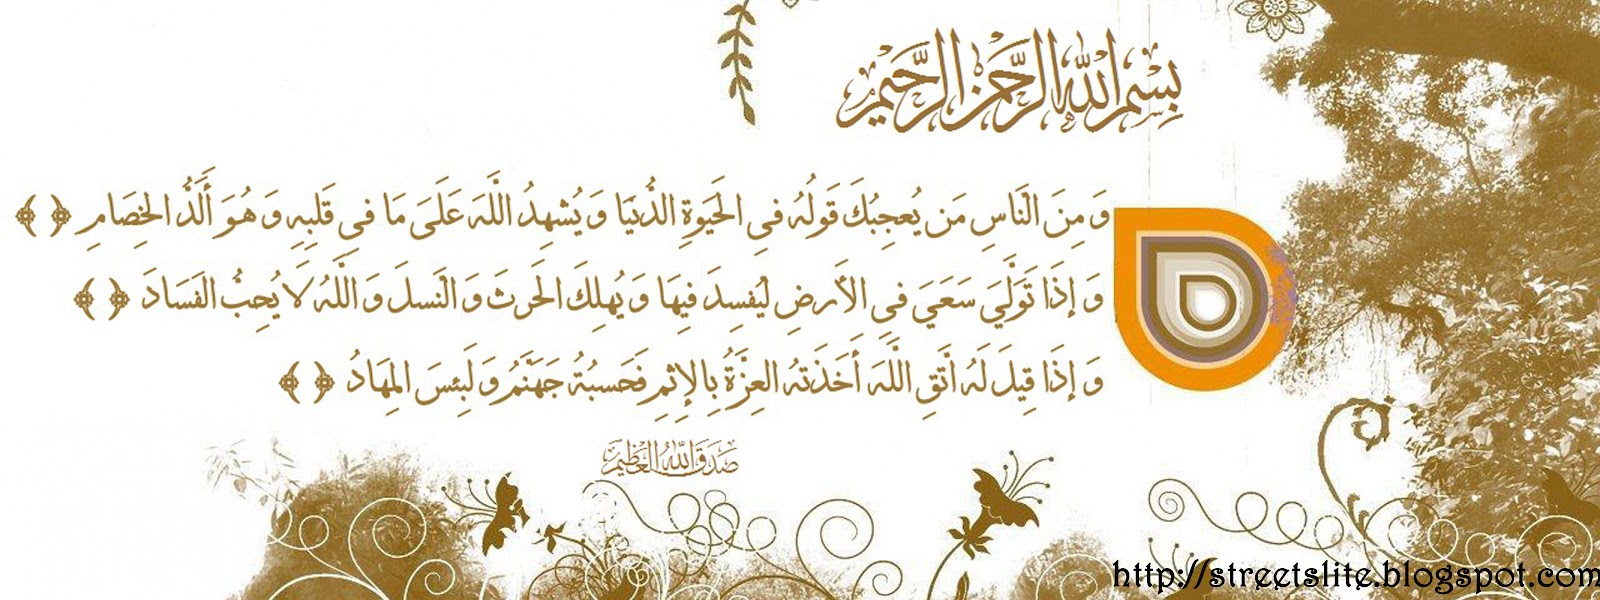 بِسْمِ اللَّهِ الرَّحْمَنِ الرَّحِيمِ
وَمِنَ النَّاسِ مَن يُعجِبُكَ قَولُهُ فِي الحَيَوةِ الدُّنيَا وَيُشهِدُ اللَّهَ عَلَىَ مَا فِي قَلبِهِ وَهُوَ أَلَدُّ الخِصَامِ ﴿ ﴾
وَإِذَا تَوَلَّيَ سَعَيَ فِي الأَرضِ لِيُفسِدَ فِيهَا وَيُهلِكَ الحَرثَ وَالنَسلَ وَاللَّهُ لاَ يُحِبُّ الفَسَادَ ﴿ ﴾
وَإِذَا قِيلَ لَهُ أتَّقِ اللَّهَ أَخَذَتهُ العِزَّةُ بِالإِثمِ فَحَسبُهُ جَهَنَّمُ وَلَبِئسَ المِهَادُ ﴿ ﴾
صَدَقَ اللهُ العَظِيم
http://streetslite.blogspot.com